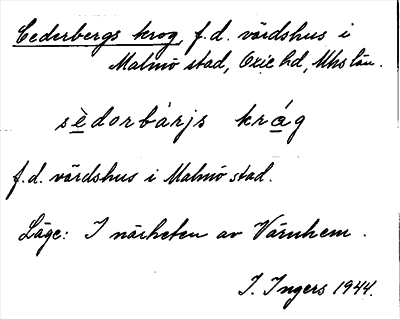 Cederbergs krog, f.d. värdshus i
Malmö stad, Oxie hd, Mhs län.
sèdorbárjs krág
f.d. värdshus i Malmö stad.
Läge: I närheten av Värnhem.
I. Ingers 1944.